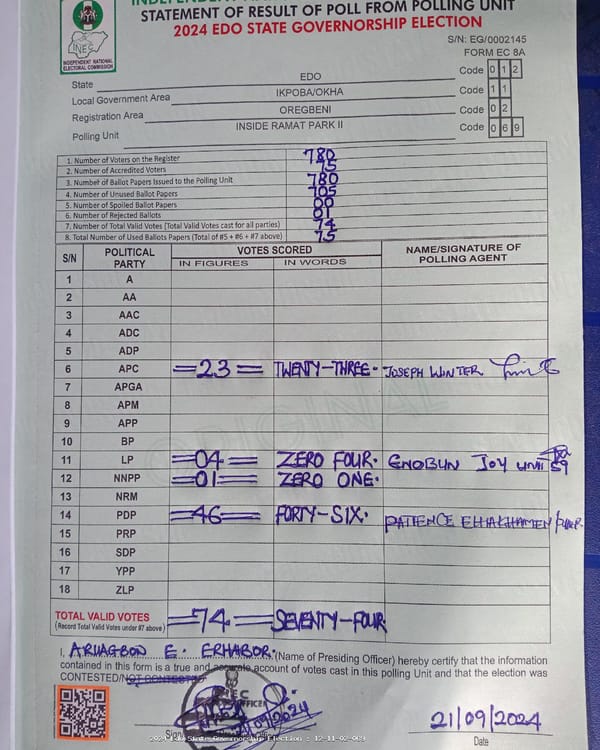 INDEPENDENT NATIONAL ELECTORAL COMMISSION
STATEMENT OF RESULT OF POLL FROM POLLING UNIT
2024 EDO STATE GOVERNORSHIP ELECTION
S/N: EG/0002145
FORM EC 8A
State EDO Code 0 1 2
Local Government Area IKPOBA/OKHA Code 1 1
Registration Area OREGBENI Code 0 2
Polling Unit INSIDE RAMAT PARK II Code 0 6 9
1. Number of Voters on the Register 780
2. Number of Accredited Voters 75
3. Number of Ballot Papers Issued to the Polling Unit 780
4. Number of Unused Ballot Papers 705
5. Number of Spoiled Ballot Papers 00
6. Number of Rejected Ballots 01
7. Number of Total Valid Votes (Total Valid Votes cast for all parties) 74
8. Total Number of Used Ballots Papers (Total of #5 + #6 + #7 above) 75
S/N POLITICAL PARTY VOTES SCORED NAME/SIGNATURE OF POLLING AGENT
IN FIGURES IN WORDS
1 A
2 AA
3 AAC
4 ADC
5 ADP
6 APC =23= TWENTY-THREE. JOSEPH WINTER
7 APGA
8 APM
9 APP
10 BP
11 LP =04= ZERO FOUR. ENOBUN JOY
12 NNPP =01= ZERO ONE.
13 NRM
14 PDP =46= FORTY-SIX. PATIENCE
15 PRP
16 SDP
17 YPP
18 ZLP
TOTAL VALID VOTES =74= SEVENTY-FOUR
(Record Total Valid Votes under #7 above)
I, ARUAGBON E. ERHABOR. (Name of Presiding Officer) hereby certify that the information
contained in this form is a true and accurate account of votes cast in this polling Unit and that the election was
CONTESTED/NOT CONTESTED
21/09/2024
Date